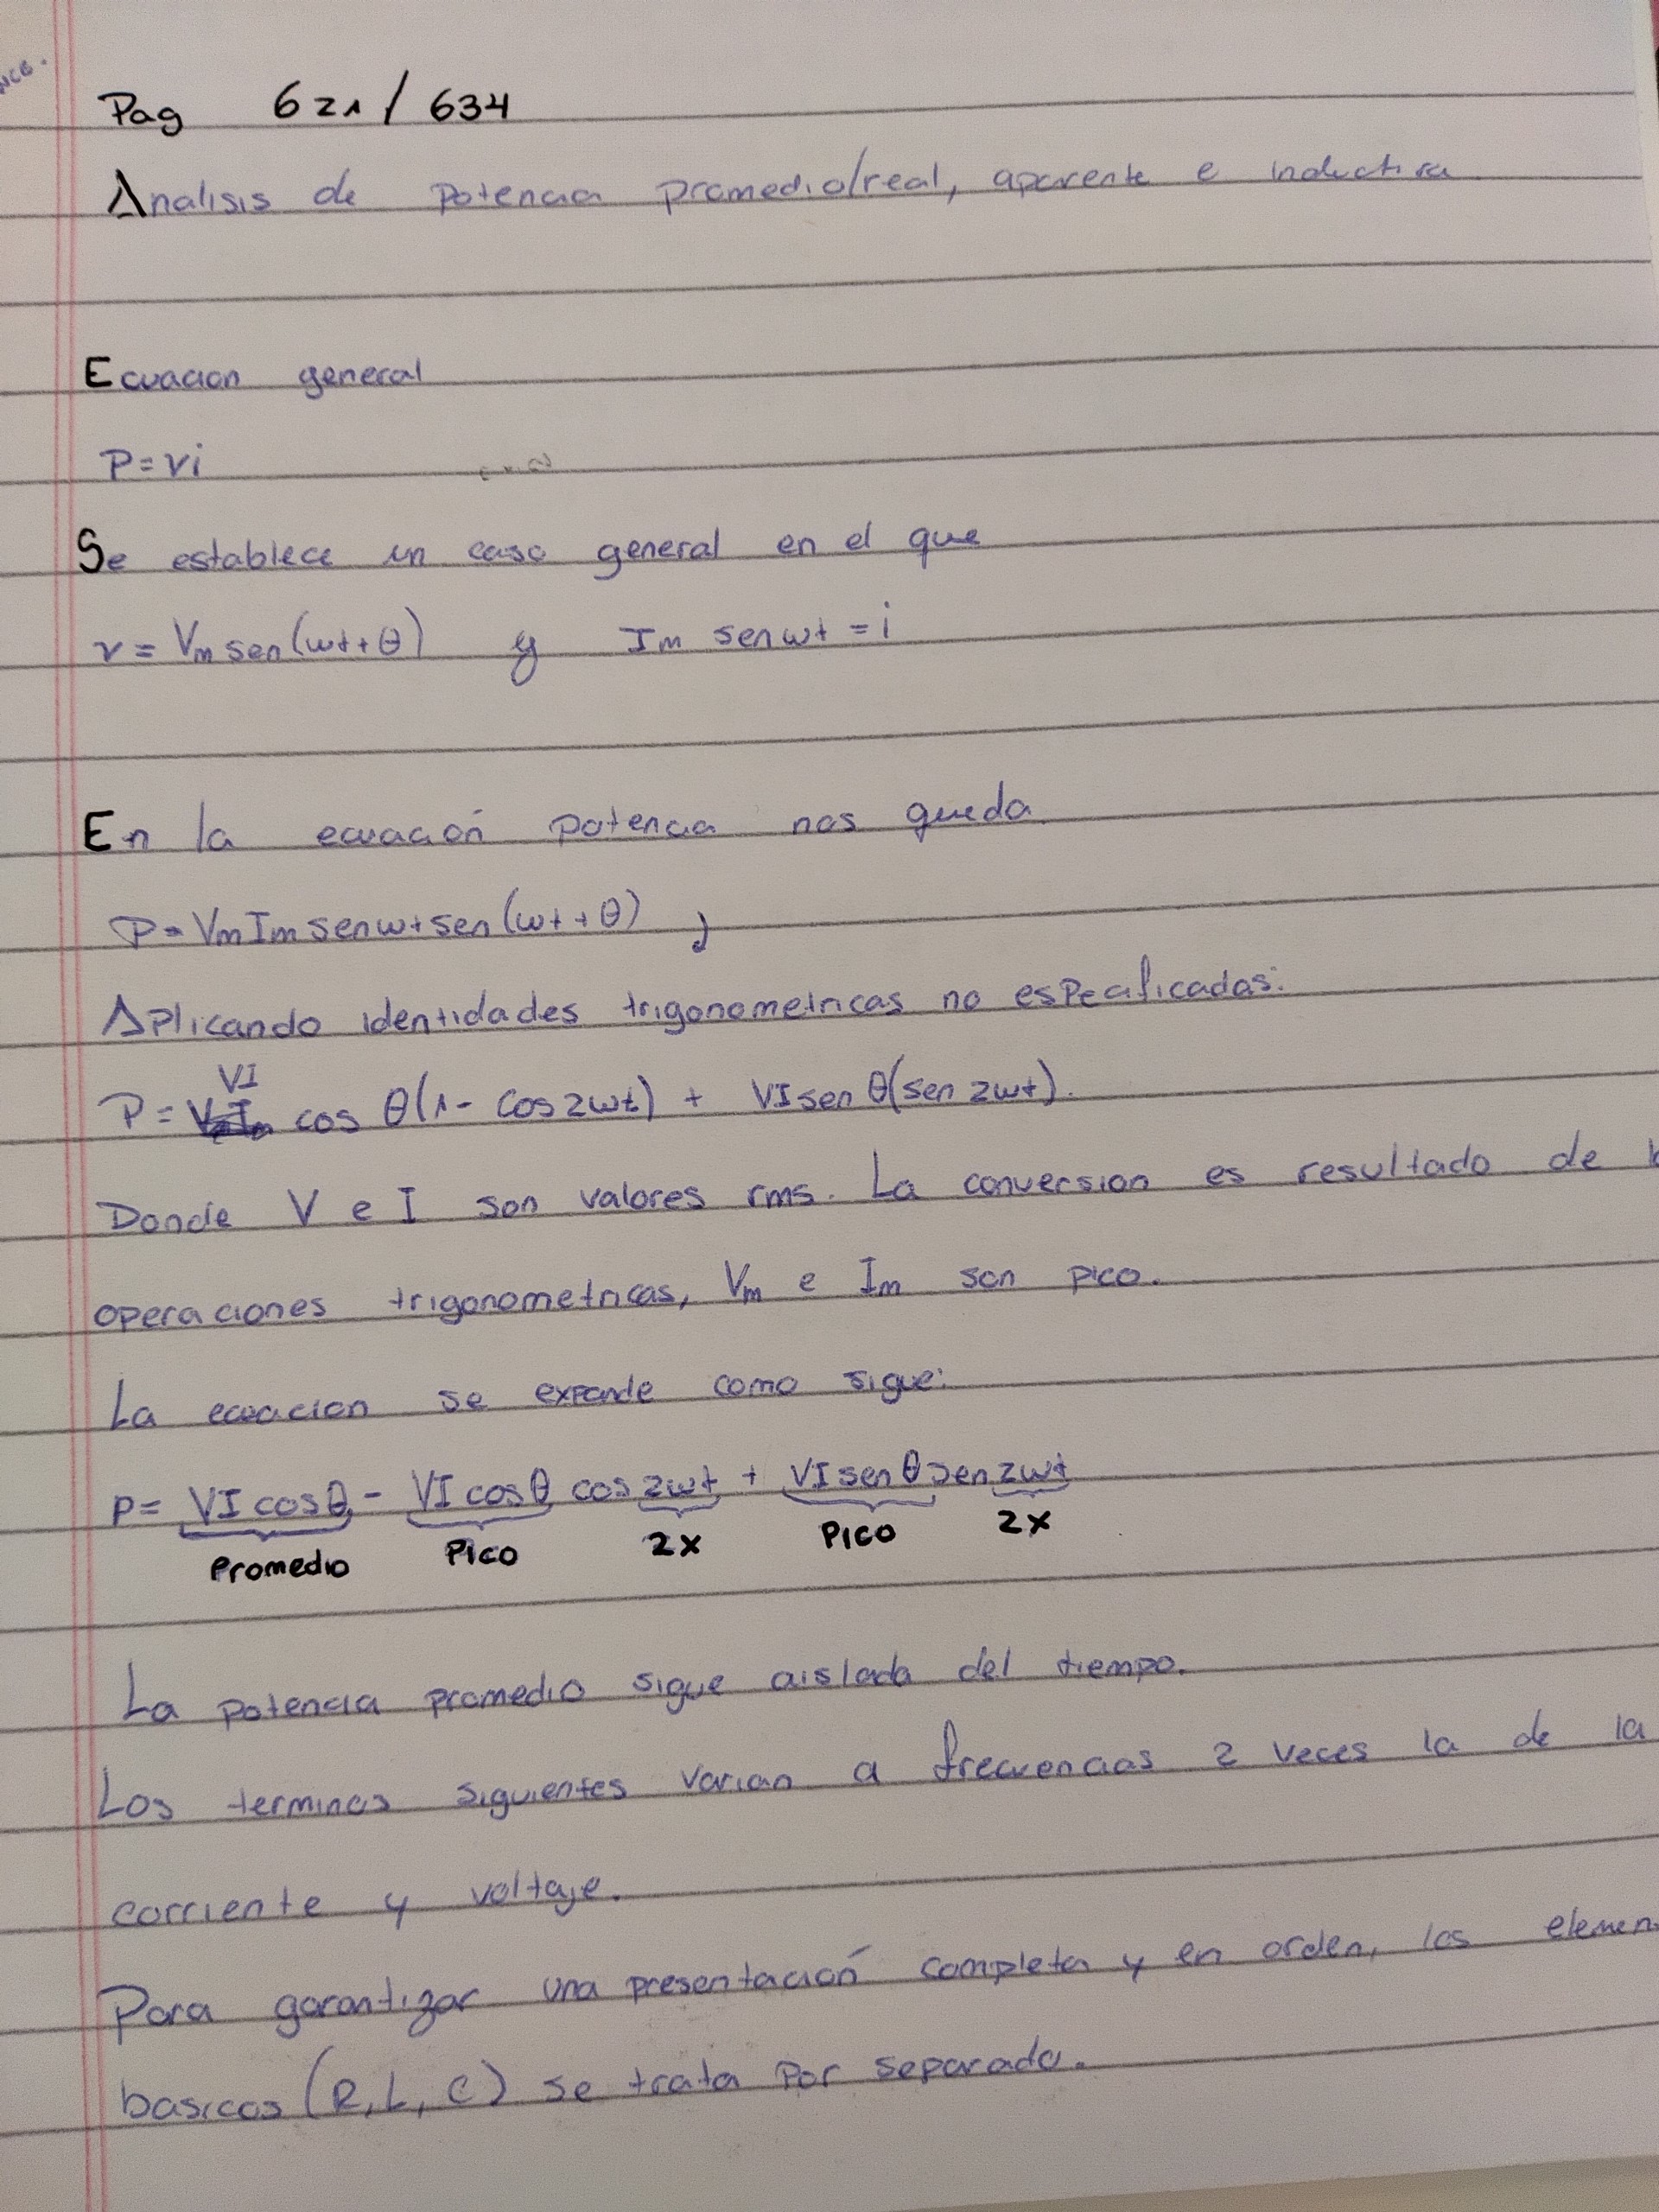 Pag 621 / 634
Analisis de potencia promedio/real, aparente e inductiva
Ecuacion general
P = vi
Se establece un caso general en el que
v = Vm sen(wt+θ) y Im senwt = i
En la ecuación potencia nos queda
P = VmIm senwt sen(wt+θ) ,
Aplicando identidades trigonometricas no especificadas:
VI
P = cos θ(1- cos2wt) + VI sen θ(sen 2wt).
Donde V e I son valores rms. La conversion es resultado de
operaciones trigonometricas, Vm e Im son pico.
La ecuacion se expande como sigue:
P = VI cosθ - VI cosθ cos 2wt + VI sen θ sen 2wt
Promedio Pico 2x Pico 2x
La potencia promedio sigue aislada del tiempo.
Los terminos siguientes varian a frecuencias 2 veces la de la
corriente y voltaje.
Para garantizar una presentación completa y en orden, los elemen
basicos (R, L, C) se trata por separado.